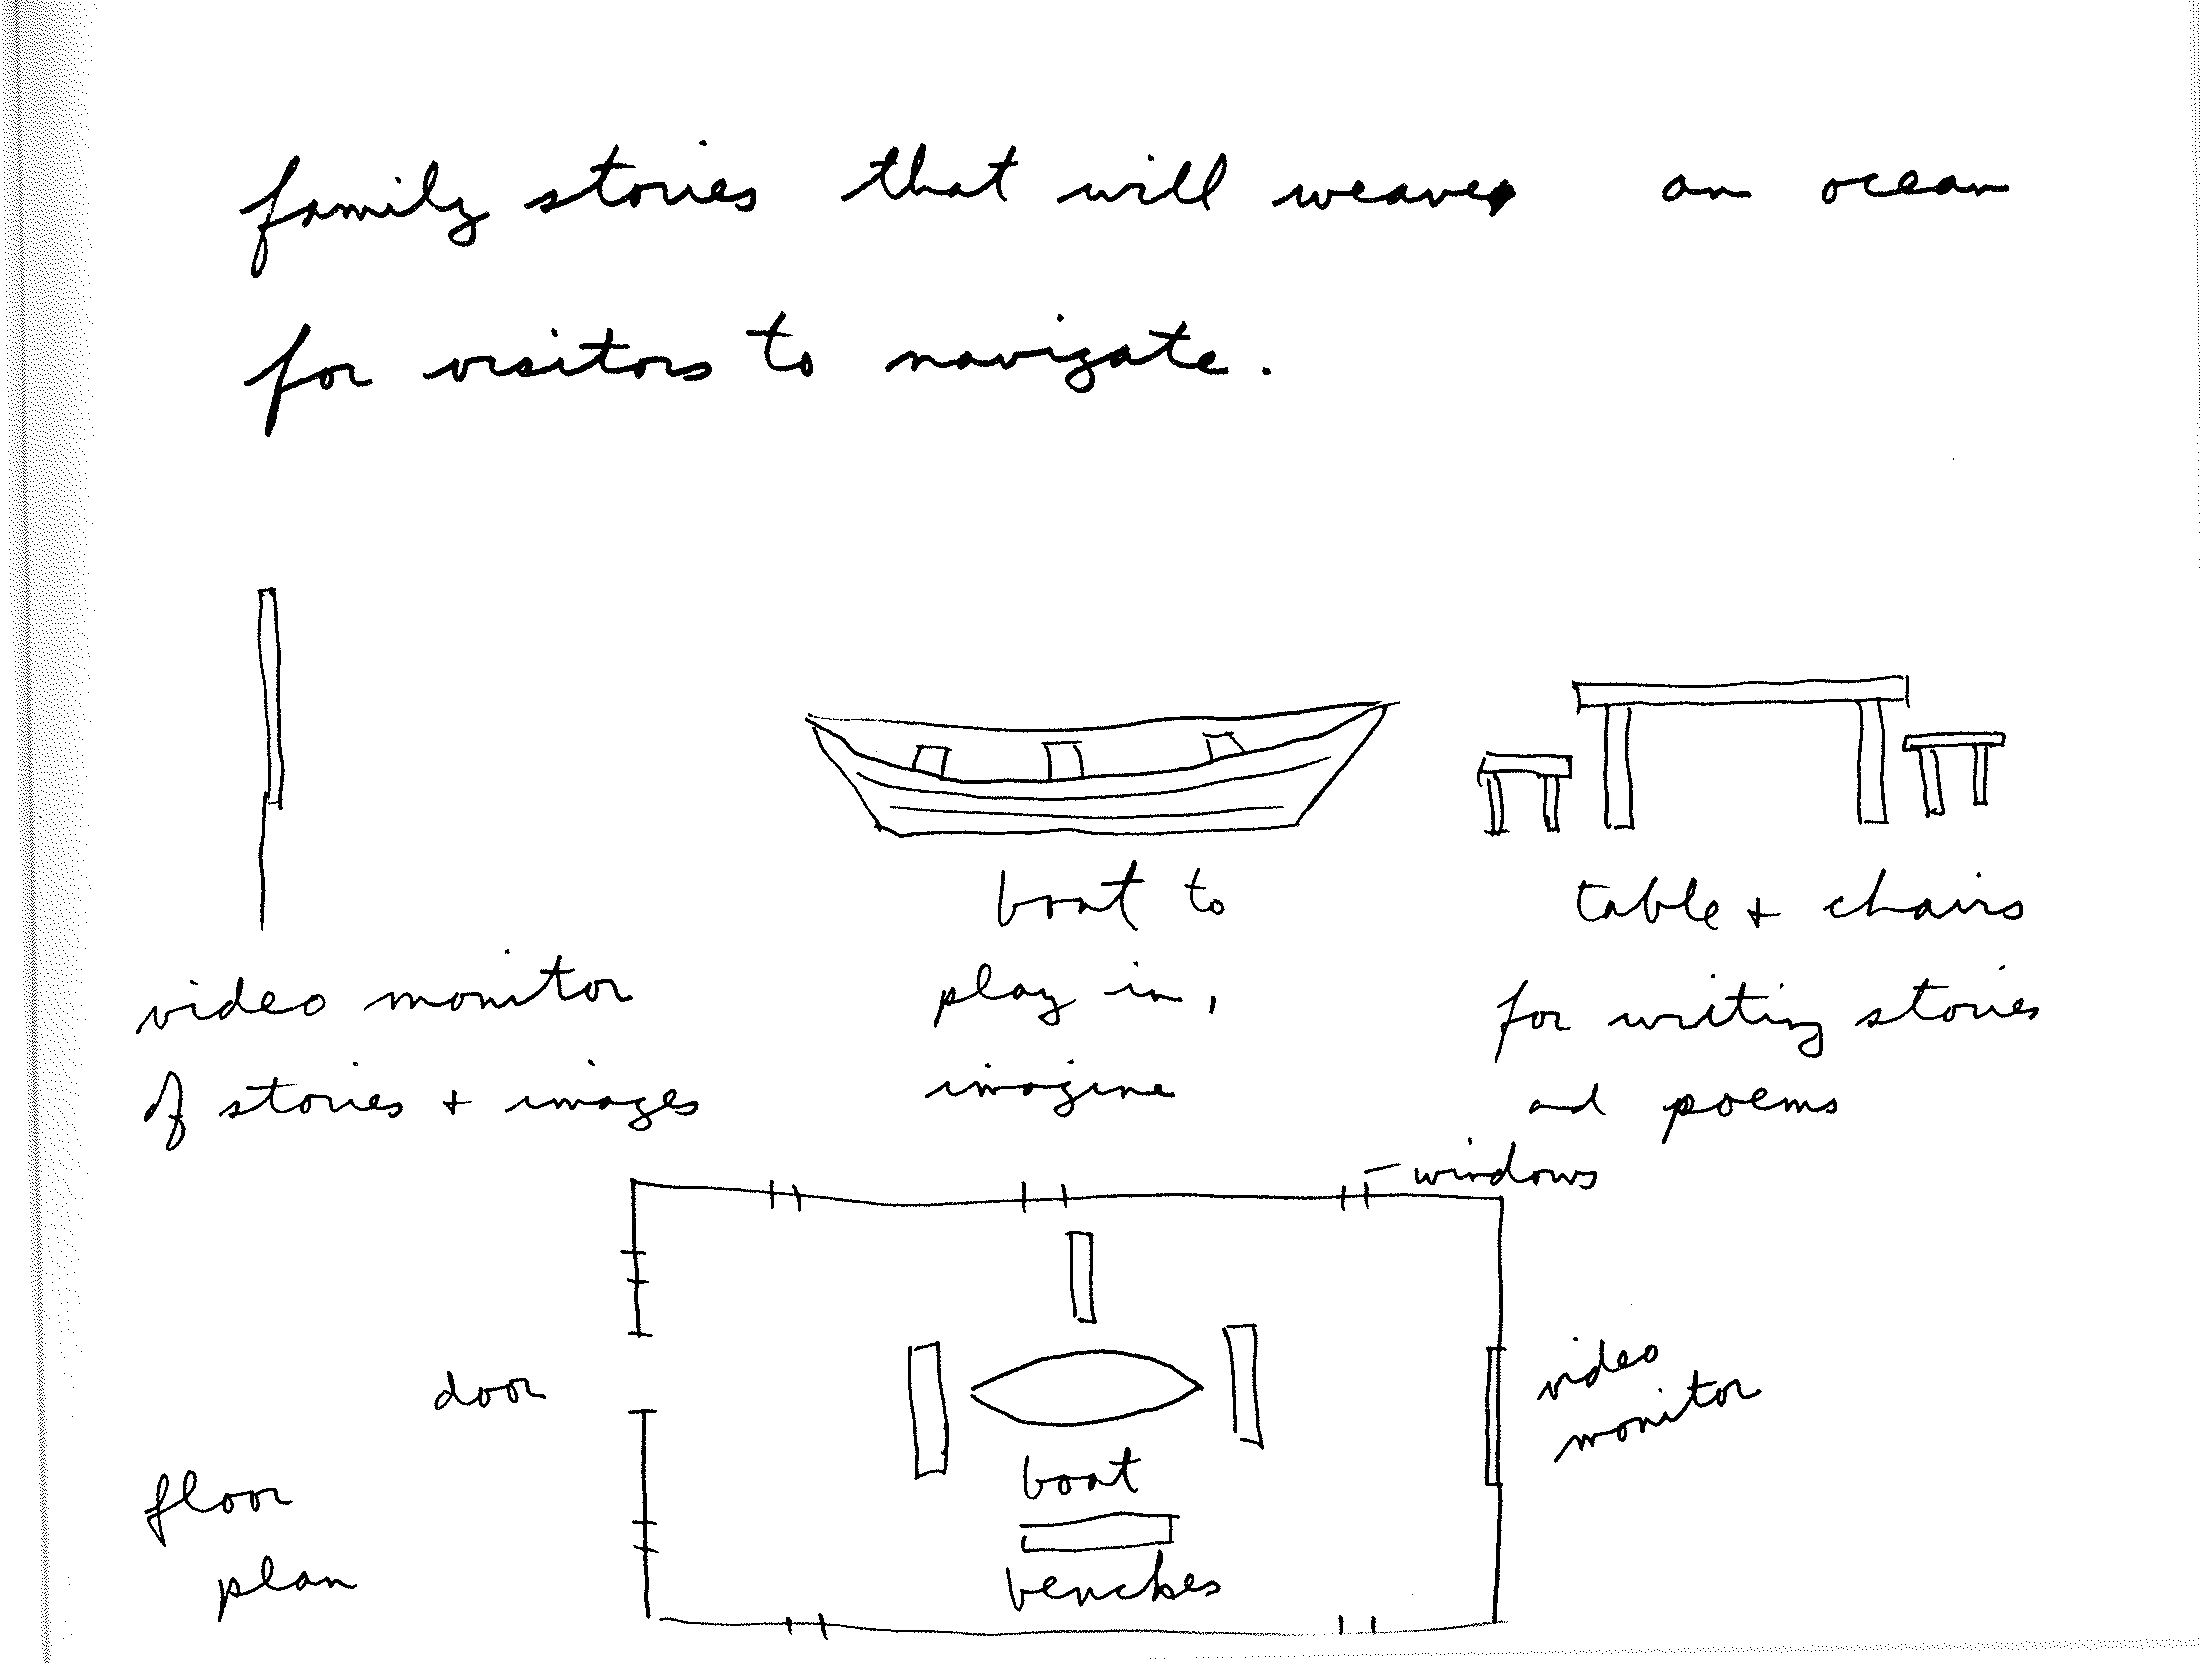 family stories that will weave an ocean
for visitors to navigate.
video monitor
of stories + images
boat to
play in,
imagine
table + chairs
for writing stories
and poems
windows
door
floor
plan
boat
benches
video
monitor